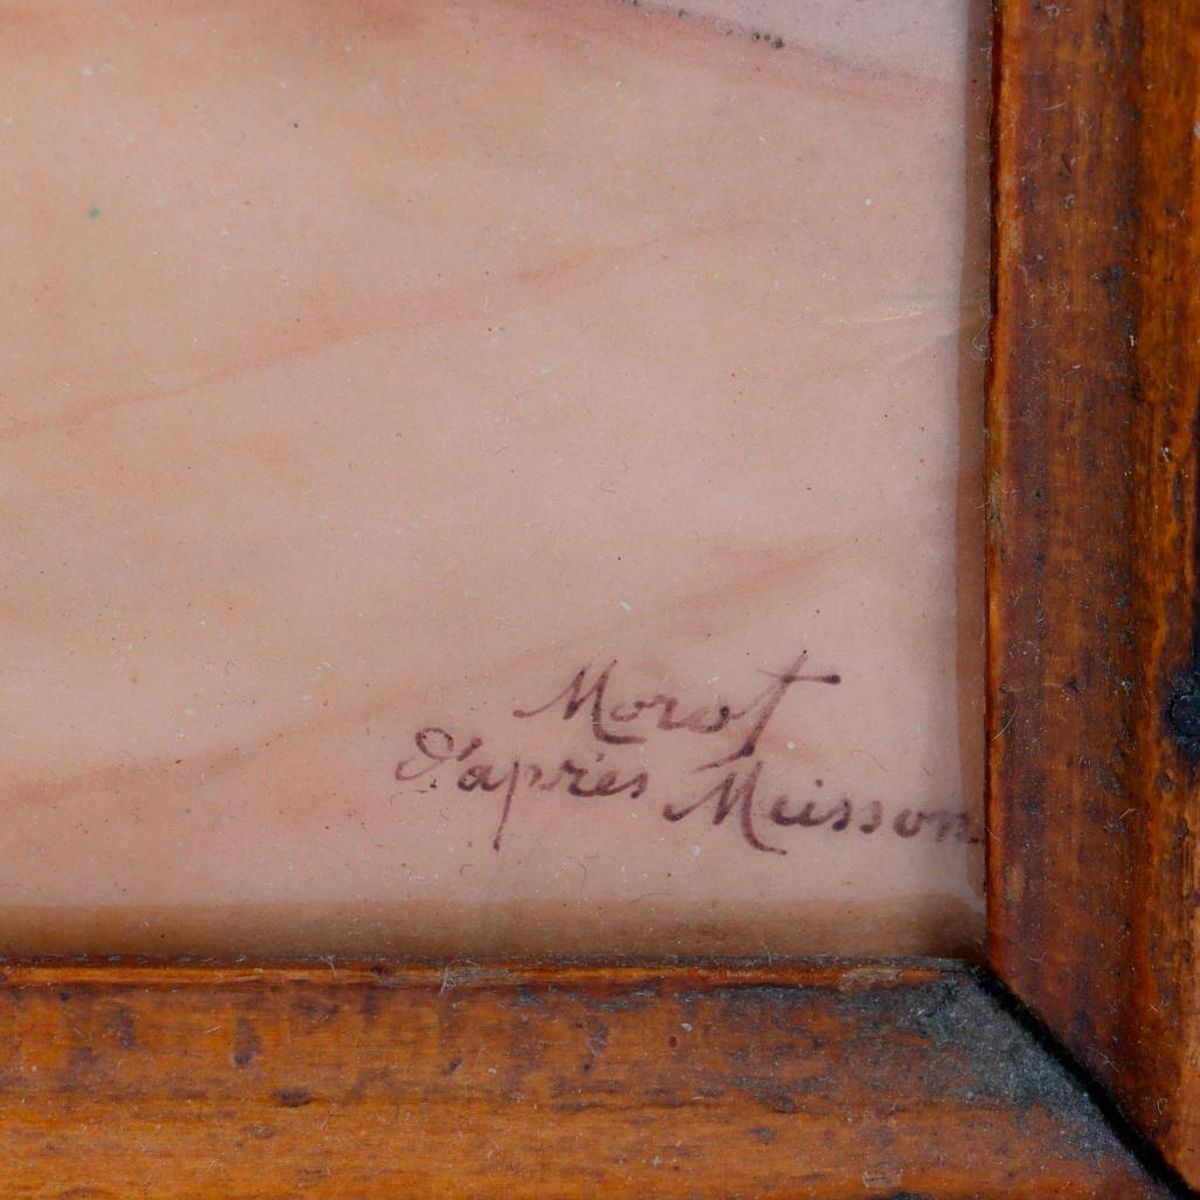 Morot
d'après Meisson